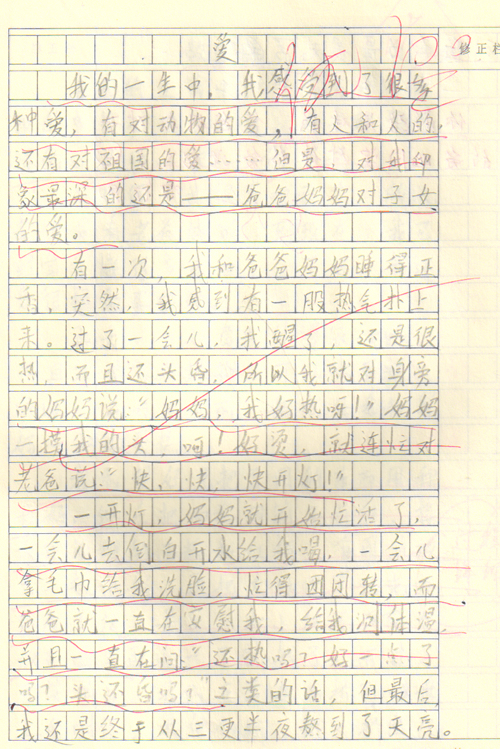 爱
修正栏
我的一生中,我感受到了很多
种爱,有对动物的爱,有人和人的,
还有对祖国的爱……但是,对我印
象最深的还是——爸爸妈妈对子女
的爱。
有一次,我和爸爸妈妈睡得正
香,突然,我感到有一股热气扑上
来。过了一会儿,我醒了,还是很
热,而且还头昏,所以我就对身旁
的妈妈说:“妈妈,我好热呀!”妈妈
一摸我的头,呵!好烫,就连忙对
老爸说:“快,快,快开灯!”
一开灯,妈妈就开始忙活了,
一会儿去倒白开水给我喝,一会儿
拿毛巾给我洗脸,忙得团团转,而
爸爸就一直在安慰我,给我测体温,
并且一直在问:“还热吗?好一点了
吗?头还昏吗?”之类的话,但最后
我还是终于从三更半夜熬到了天亮。